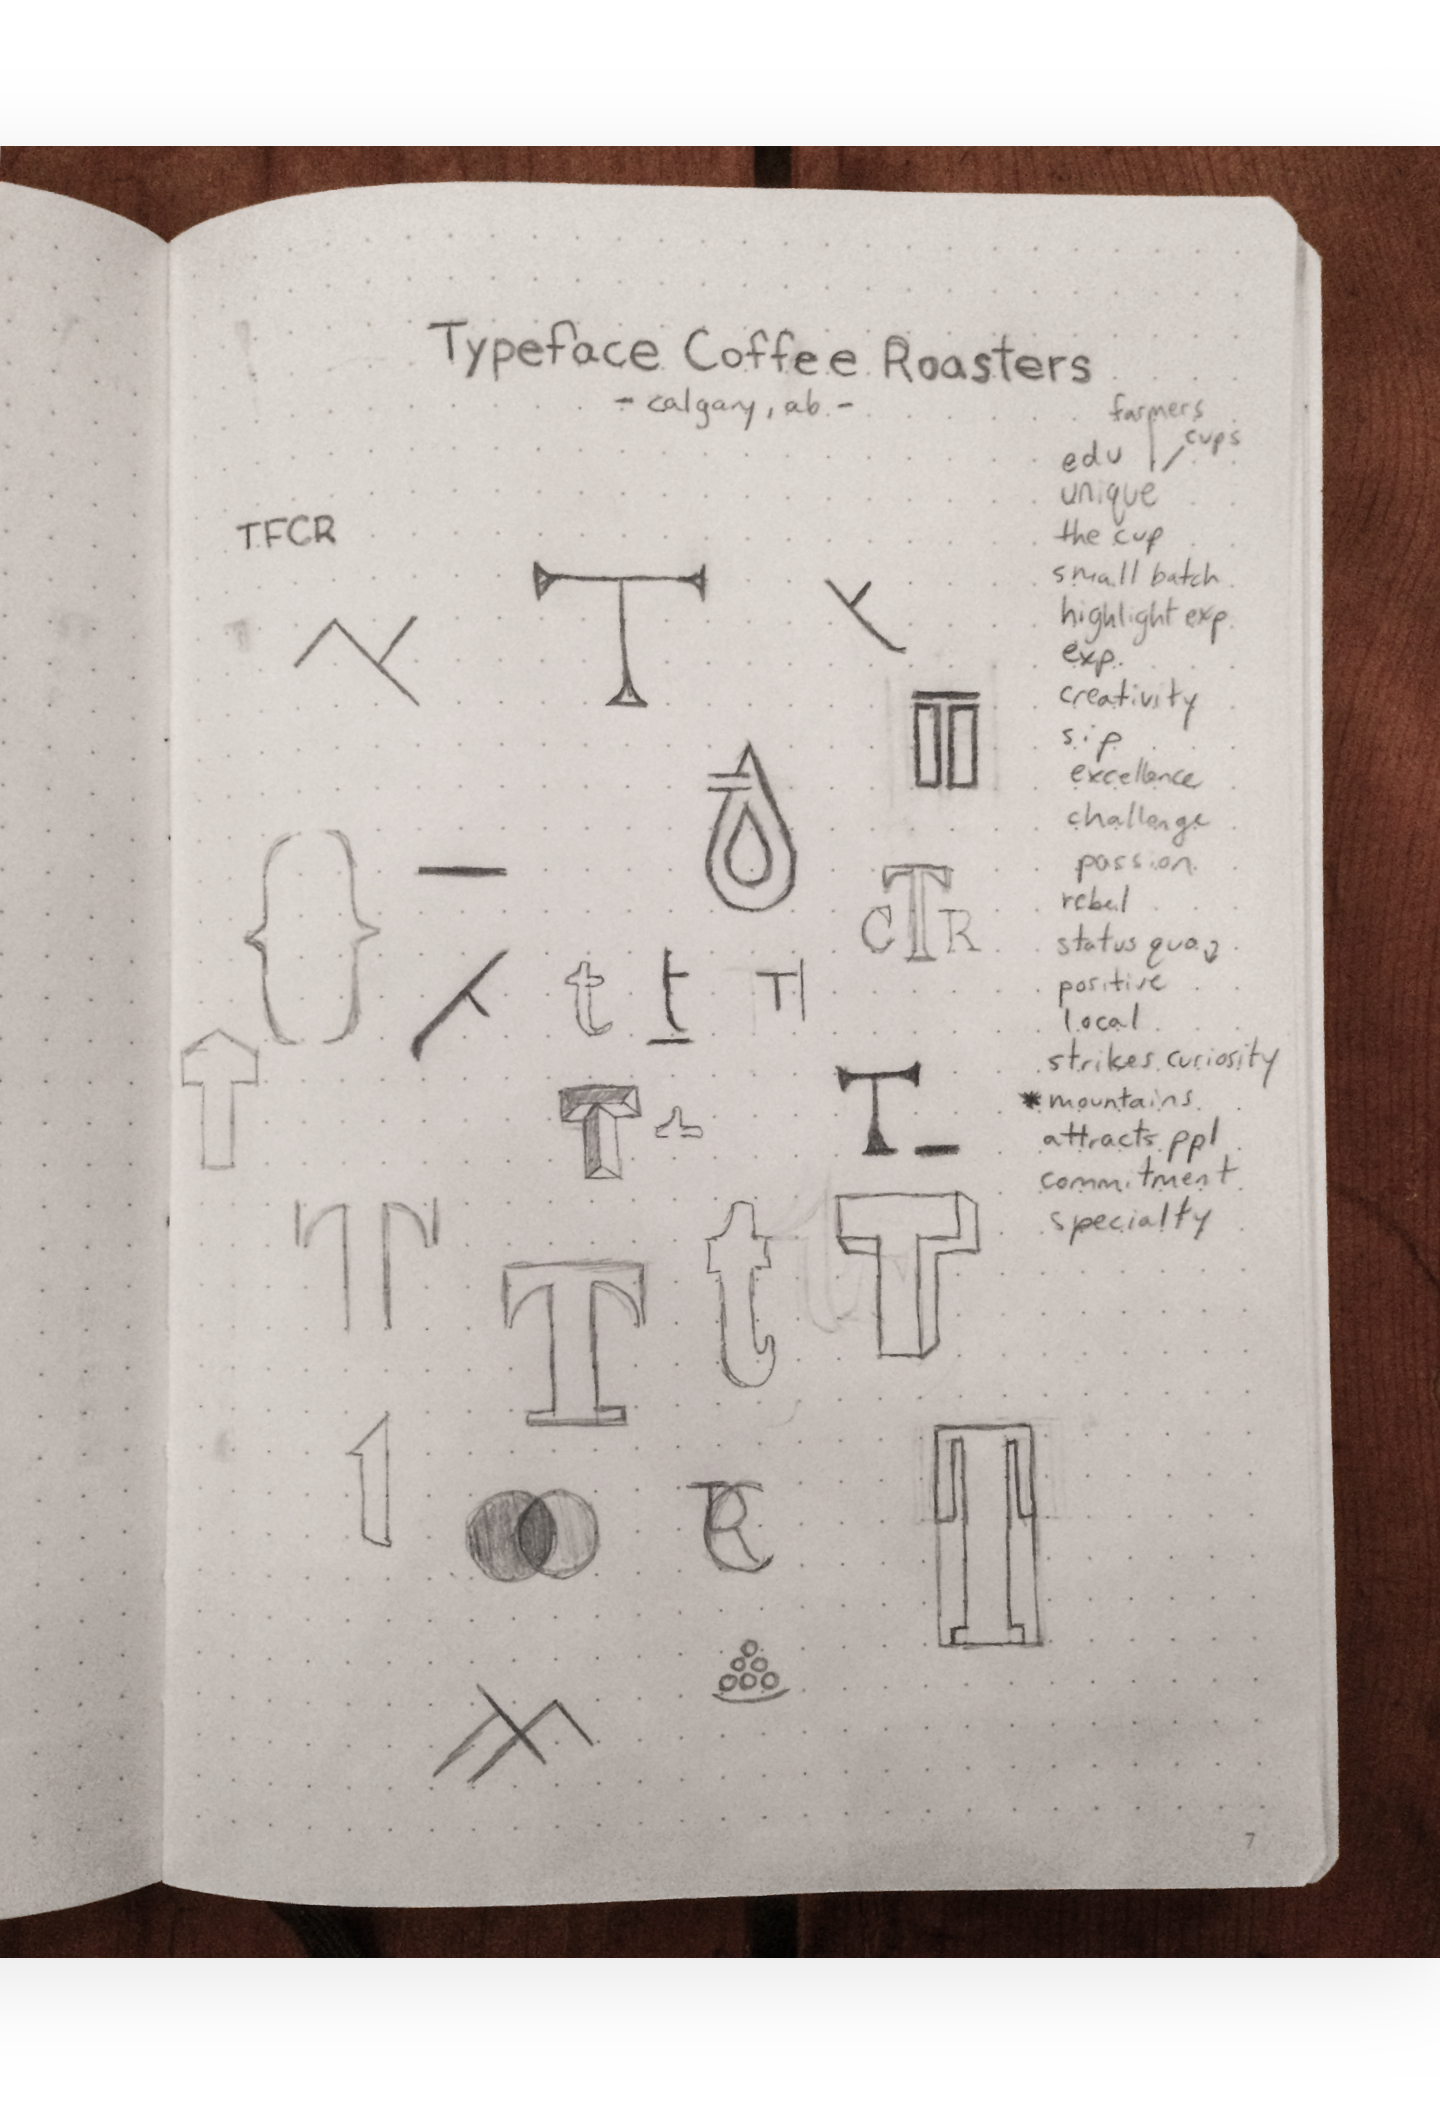 Typeface Coffee Roasters
- calgary, ab -
farmers
cups
edu
unique
TFCR
the cup
small batch
highlight exp.
exp.
creativity
sip
excellence
challenge
passion
rebel
CTR
status quo
positive
t t T|
local
strikes curiosity
T_
*mountains
attracts ppl
T
commitment
specialty
T t T
7